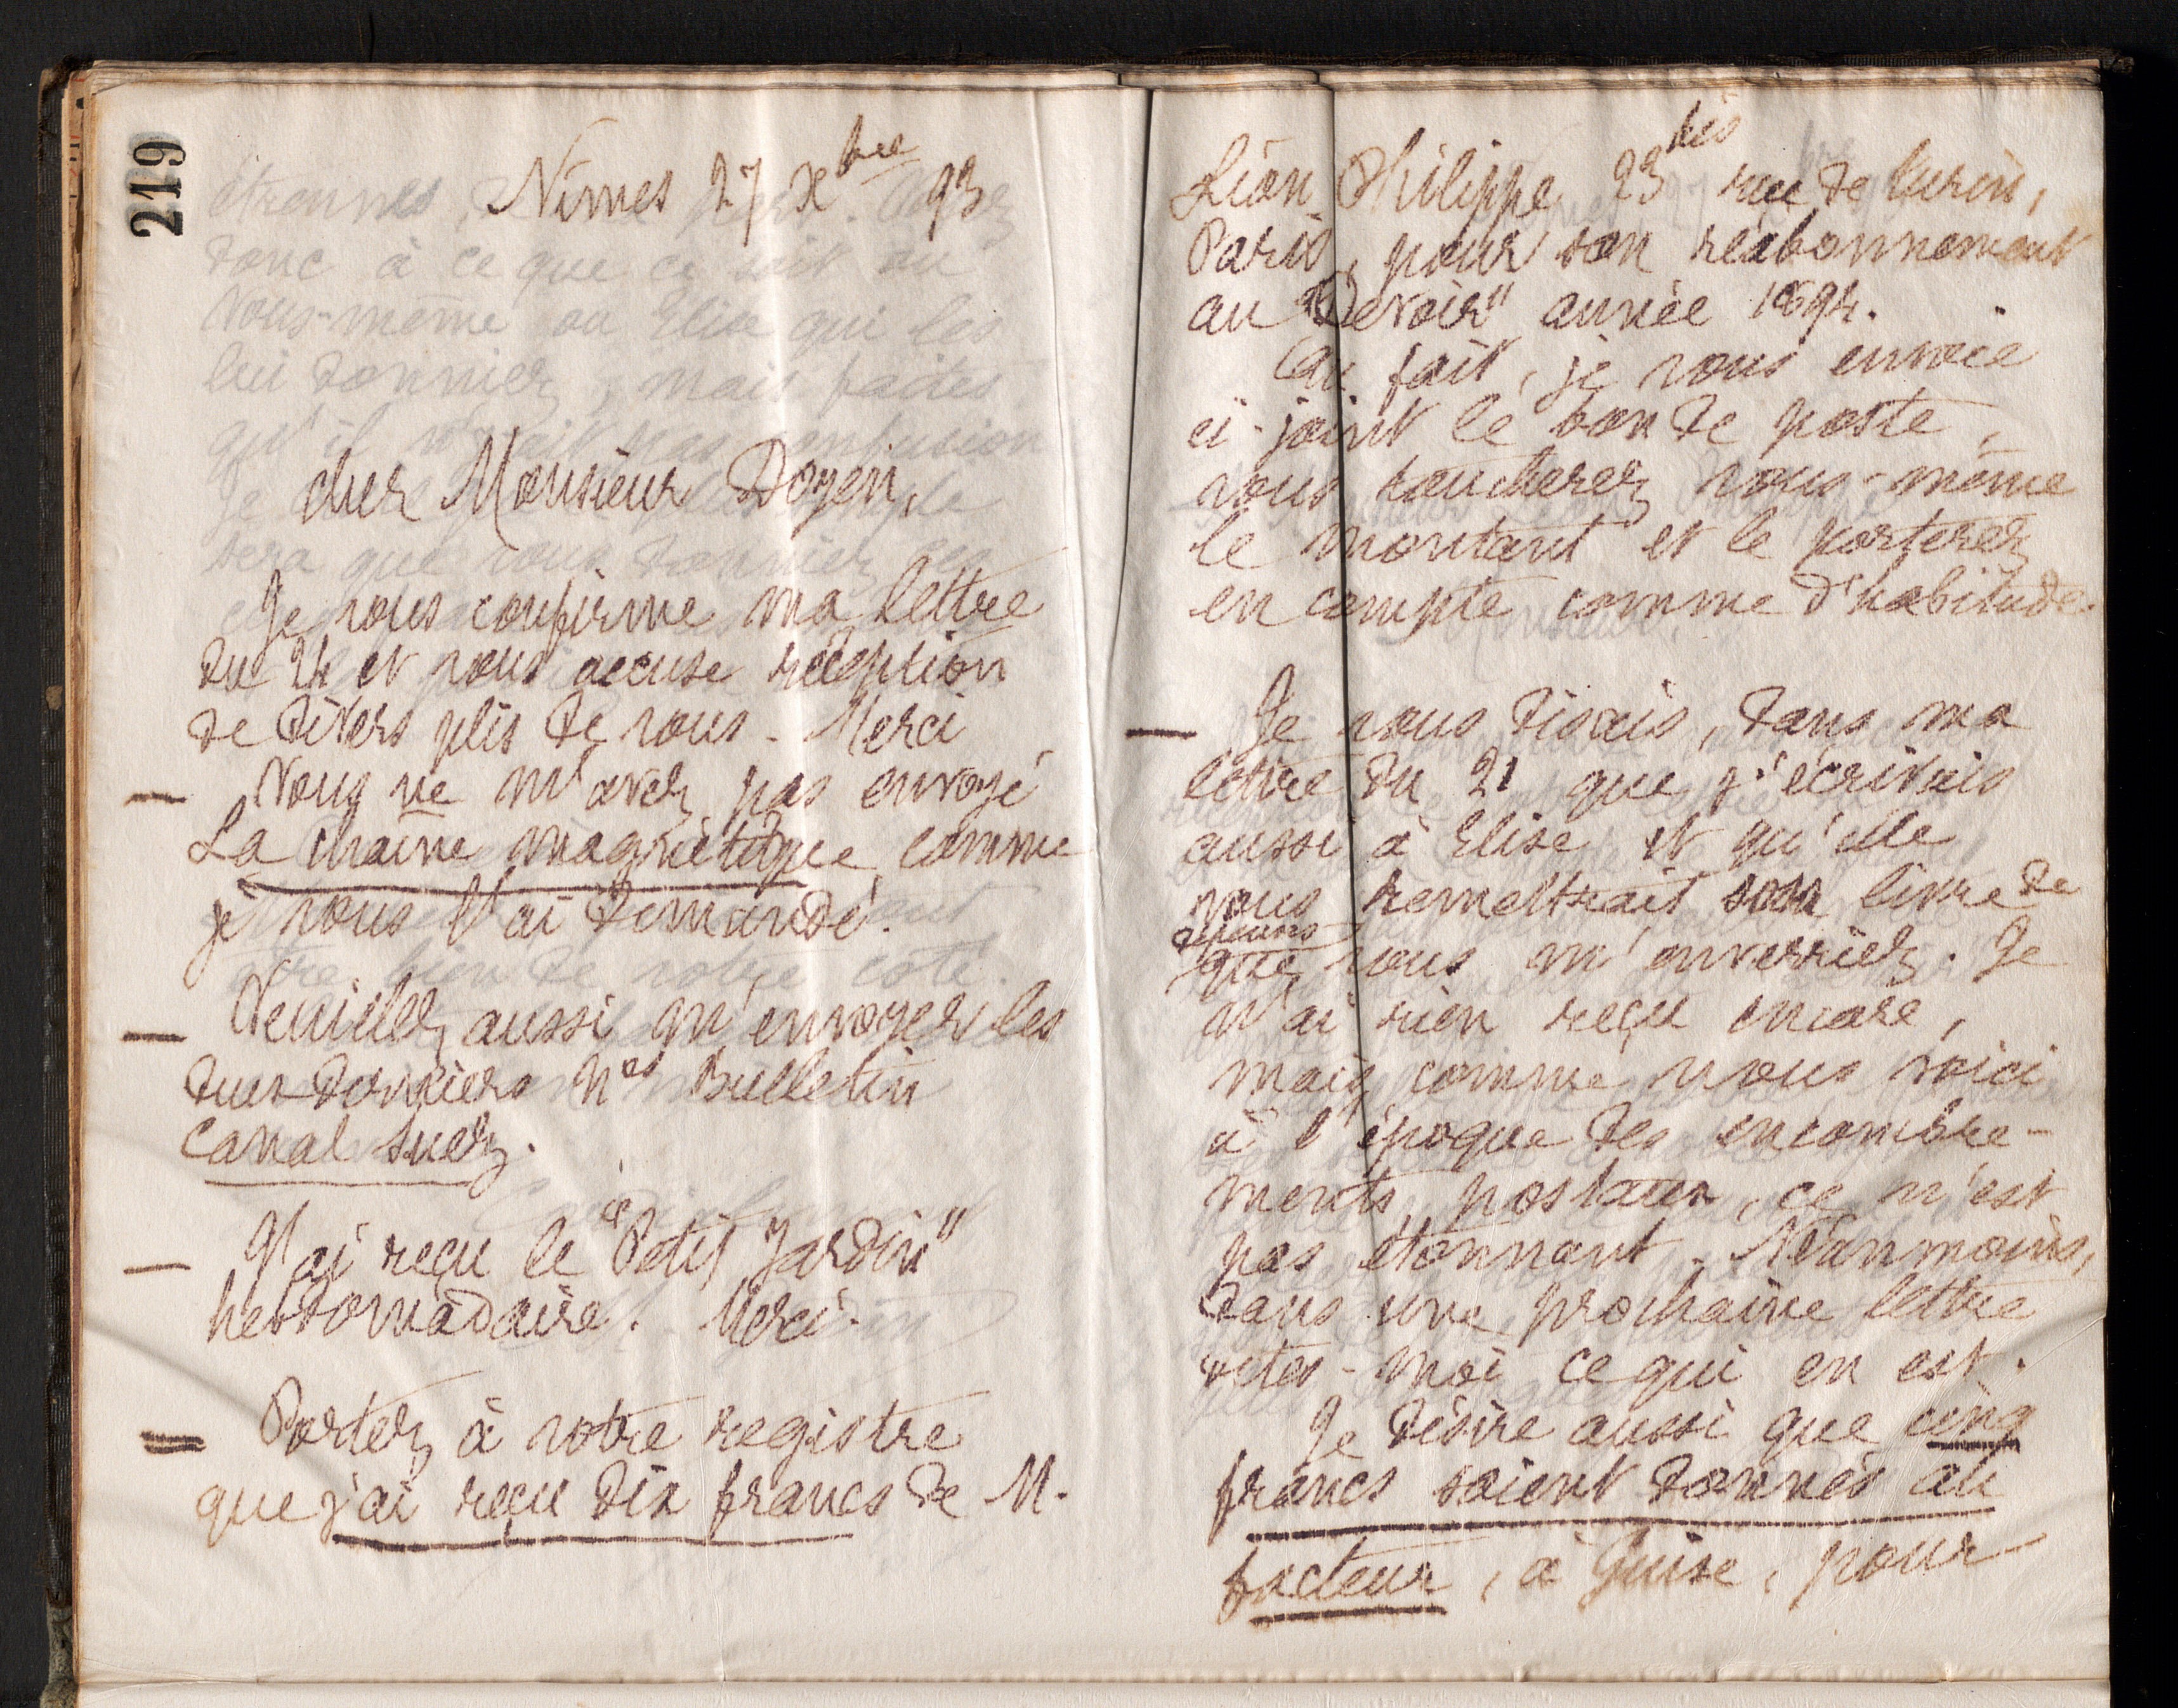 219
Nimes 27 Xbre 93
cher Monsieur Doyen,
Je vous confirme ma lettre
du 24 et vous accuse réception
de divers plis de vous - Merci
— Vous ne m'avez pas envoyé
La chaîne magnétique, comme
je vous l'ai demandé.
— Veuillez aussi m'envoyer les
deux derniers Nos Bulletin
Canal Suez.
— J'ai reçu le "Petit Jardin"
hebdomadaire. Merci.
— Portez à votre registre
que j'ai reçu dix francs de M.
Léon Philippe 23 bis rue de Turin,
Paris, pour son réabonnement
au "Devoir" année 1894.
Au fait, je vous envoie
ci-joint le bon de poste,
vous toucherez vous-même
le montant et le porterez
en compte comme d'habitude.
— Je vous disais, dans ma
lettre du 21 que j'écrivais
aussi à Elise et qu'elle
vous remettrait son livre de
dépenses
que vous m'enverriez. Je
n'ai rien reçu encore,
mais comme nous voici
à l'époque des encombre-
ments postaux, ce n'est
pas étonnant. Néanmoins,
dans une prochaine lettre
dites-moi ce qui en est.
Je désire aussi que cinq
francs soient donnés au
facteur, à Guise, pour